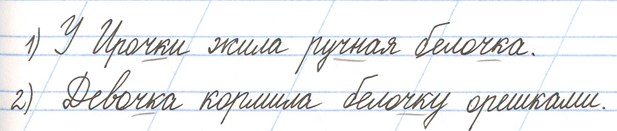 1) У Ирочки жила ручная белочка.
2) Девочка кормила белочку орешками.